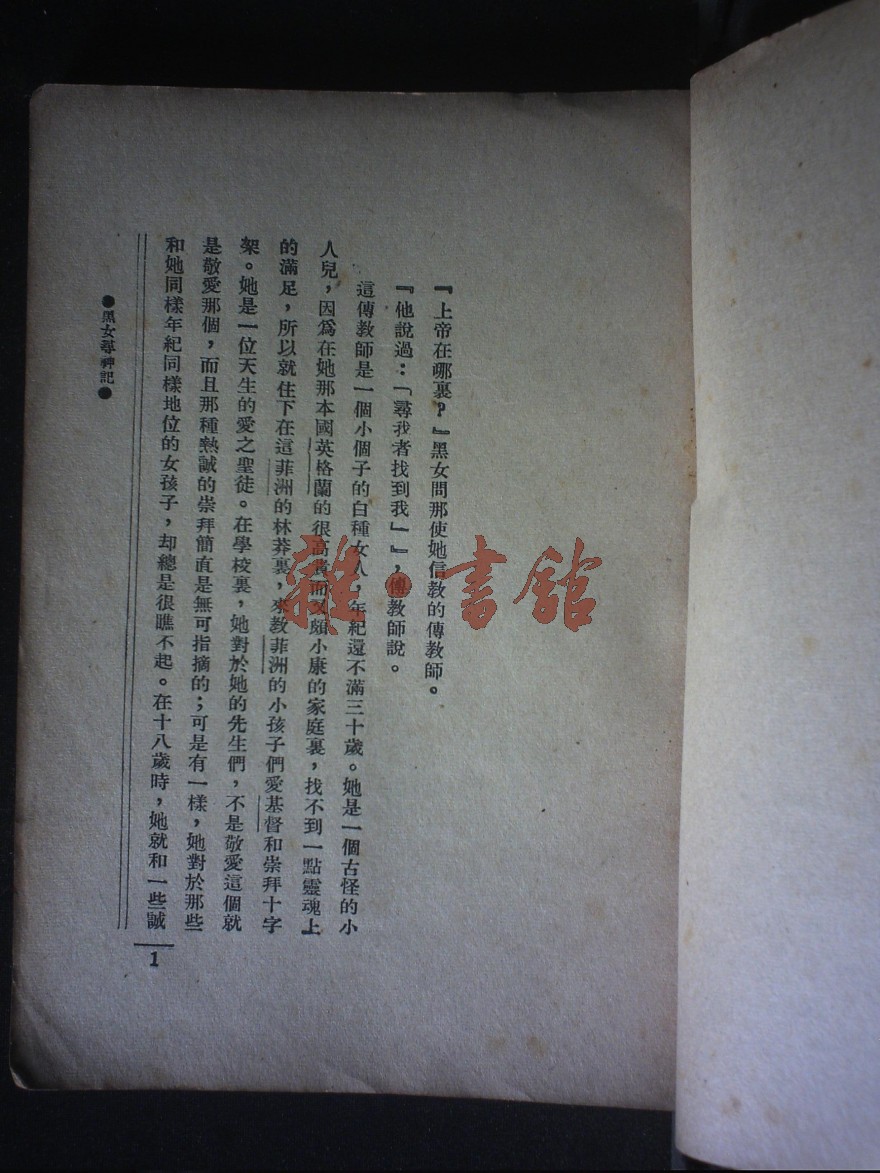 『上帝在哪裏？』黑女問那使她信教的傳教師。
『他說過：「尋我者找到我」』，傳教師說。
這傳教師是一個小個子的白種女人，年紀還不滿三十歲。她是一個古怪的小
人兒，因爲在她那本國英格蘭的很高貴而又頗小康的家庭裏，找不到一點靈魂上
的滿足，所以就住下在這菲洲的林莽裏，來教菲洲的小孩子們愛基督和崇拜十字
架。她是一位天生的愛之聖徒。在學校裏，她對於她的先生們，不是敬愛這個就
是敬愛那個，而且那種熱誠的崇拜簡直是無可指摘的；可是有一樣，她對於那些
和她同樣年紀同樣地位的女孩子，却總是很瞧不起。在十八歲時，她就和一些誠
●黑女尋神記●
1
雜·書館